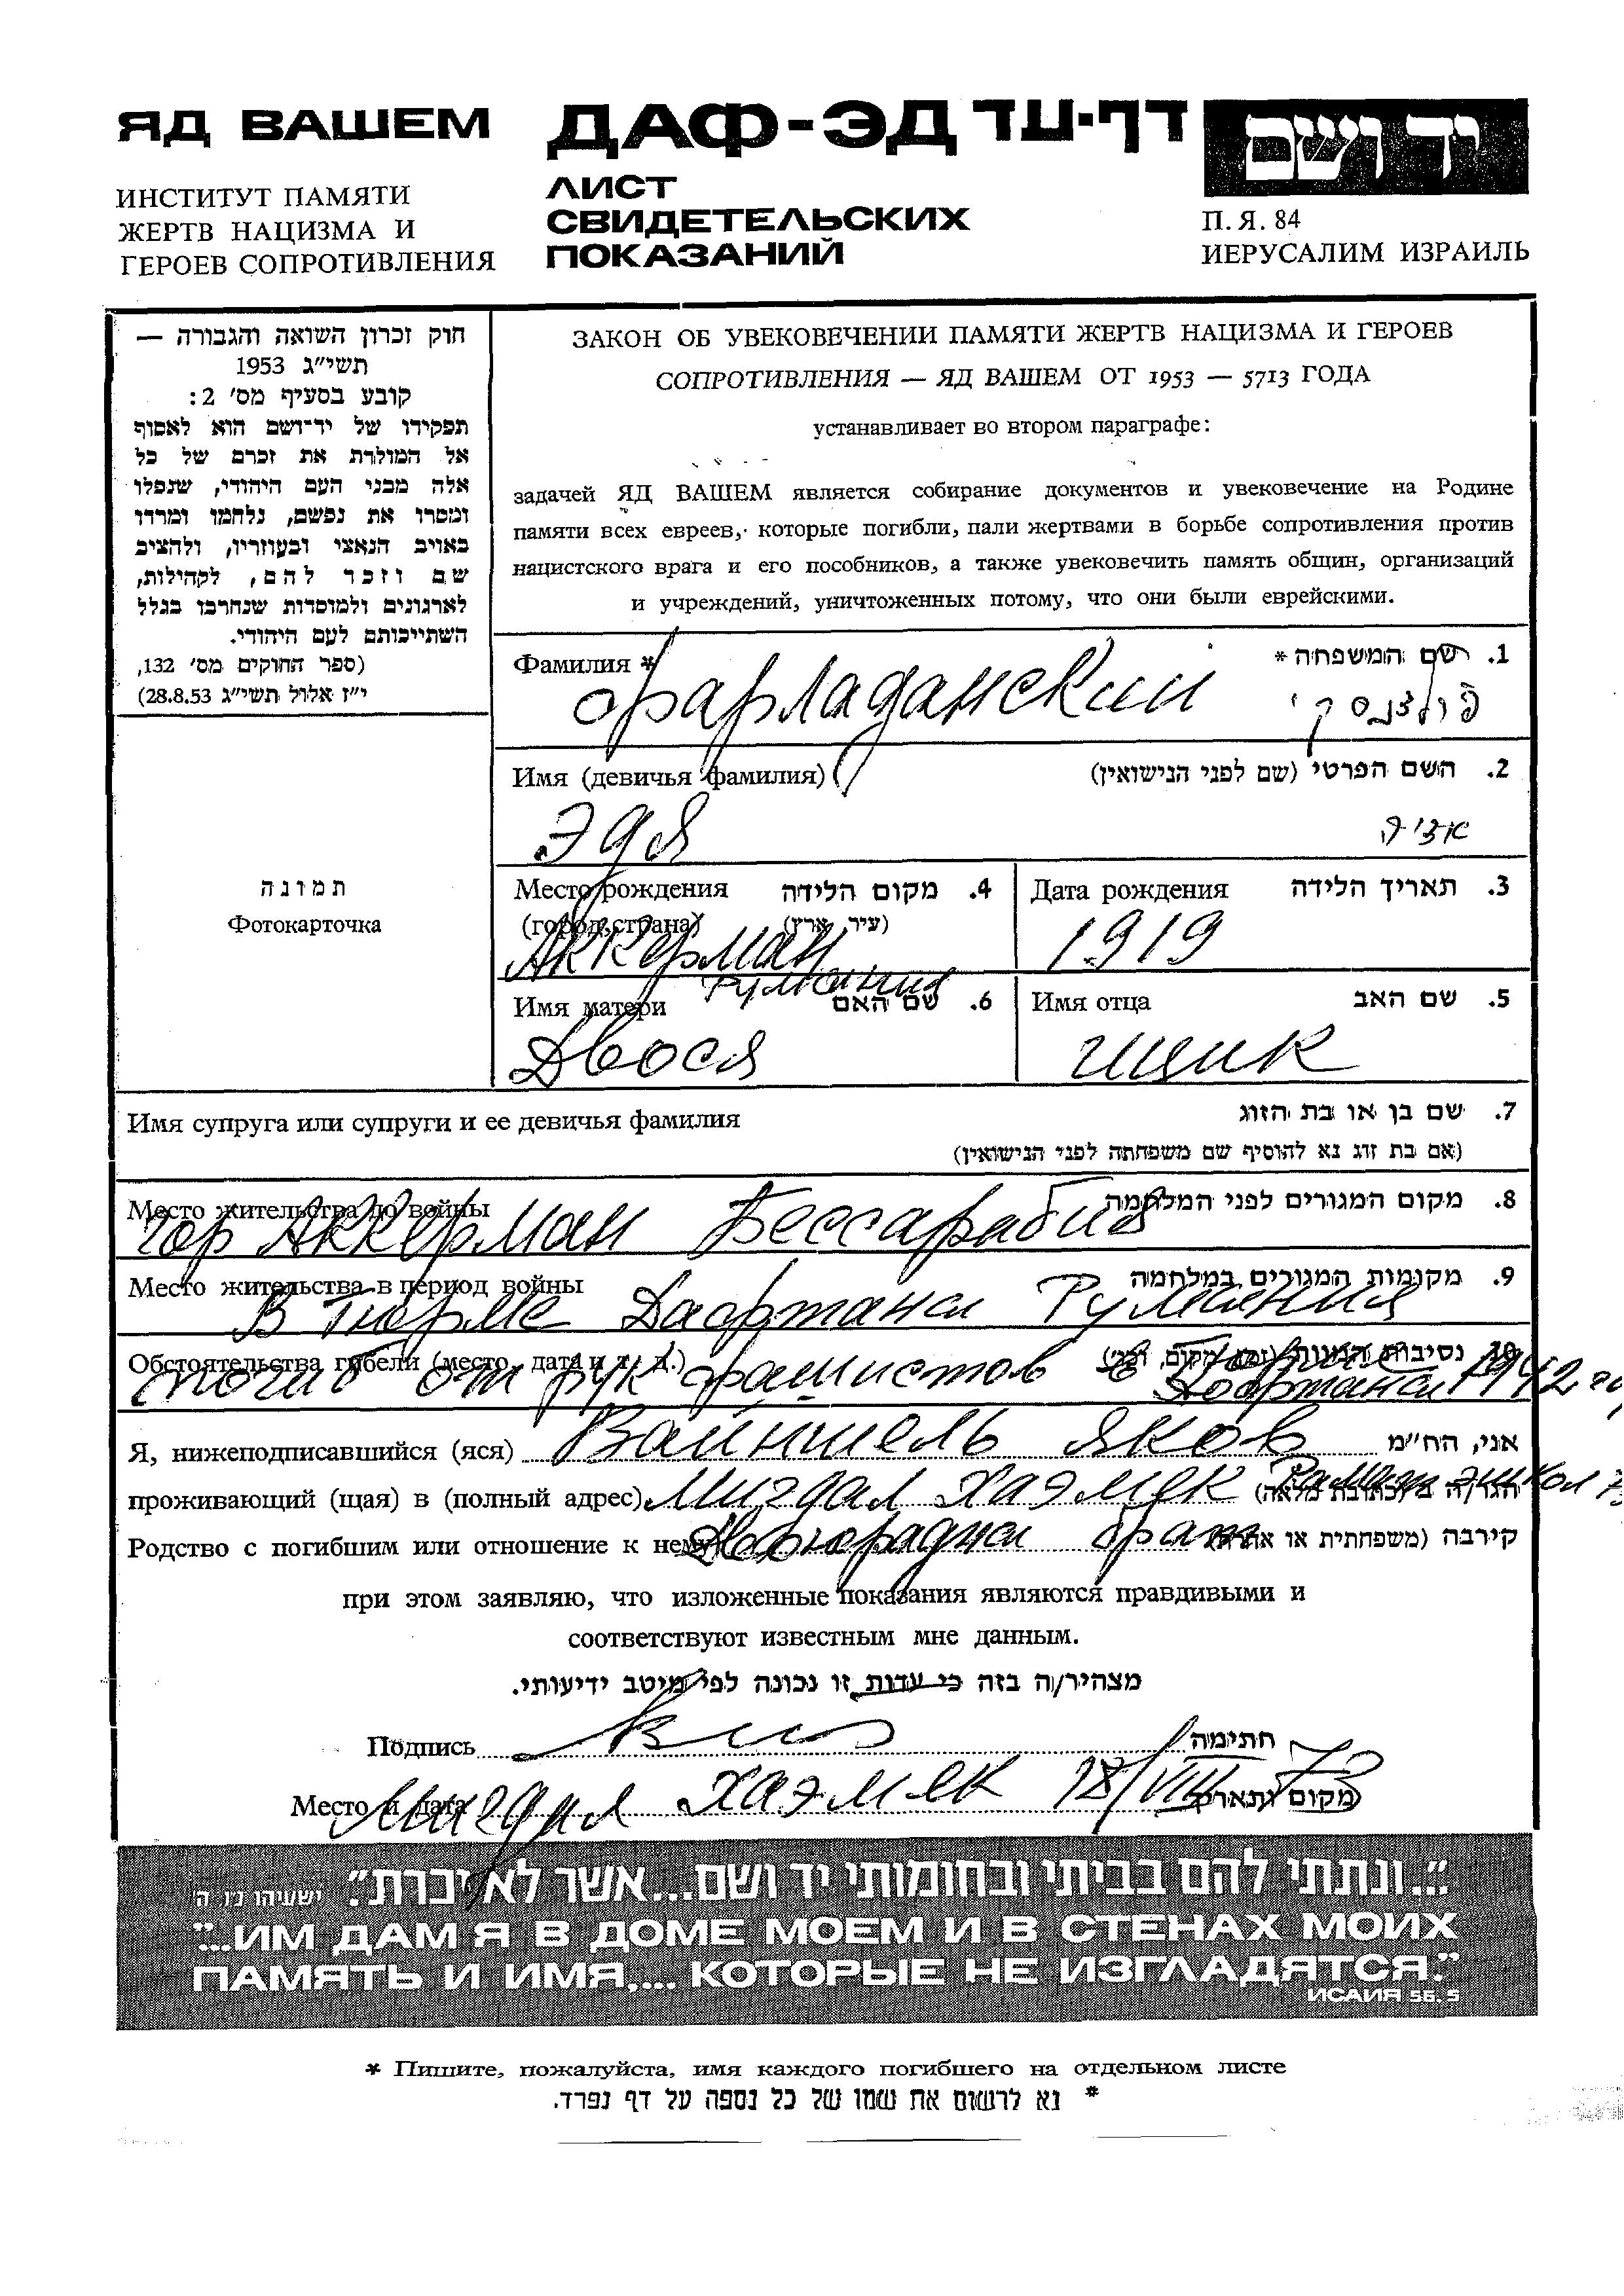 ЯД ВАШЕМ
ИНСТИТУТ ПАМЯТИ
ЖЕРТВ НАЦИЗМА И
ГЕРОЕВ СОПРОТИВЛЕНИЯ
ДАФ-ЭД דף-עד
ЛИСТ
СВИДЕТЕЛЬСКИХ
ПОКАЗАНИЙ
יד ושם
П. Я. 84
ИЕРУСАЛИМ ИЗРАИЛЬ
חוק זכרון השואה והגבורה —
תשי״ג 1953
קובע בסעיף מס׳ 2:
תפקידו של יד־ושם הוא לאסוף
אל המולדת את זכרם של כל
אלה מבני העם היהודי, שנפלו
ומסרו את נפשם, נלחמו ומרדו
באויב הנאצי ובעוזריו, ולהציב
שם וזכר להם, לקהילות,
לארגונים ולמוסדות שנחרבו בגלל
השתייכותם לעם היהודי.
(ספר החוקים מס׳ 132,
י״ז אלול תשי״ג 28.8.53)
ЗАКОН ОБ УВЕКОВЕЧЕНИИ ПАМЯТИ ЖЕРТВ НАЦИЗМА И ГЕРОЕВ
СОПРОТИВЛЕНИЯ — ЯД ВАШЕМ ОТ 1953 — 5713 ГОДА
устанавливает во втором параграфе:
задачей ЯД ВАШЕМ является собирание документов и увековечение на Родине
памяти всех евреев, которые погибли, пали жертвами в борьбе сопротивления против
нацистского врага и его пособников, а также увековечить память общин, организаций
и учреждений, уничтоженных потому, что они были еврейскими.
Фамилия * 1. שם המשפחה *
Фарладанский
Имя (девичья фамилия) 2. השם הפרטי (שם לפני הנישואין)
Эдя אדיה
תמונה
Фотокарточка
Место рождения 4. מקום הלידה
(город, страна) (עיר, ארץ)
Аккерман
Румыния
Дата рождения 3. תאריך הלידה
1919
Имя матери 6. שם האם
Двося
Имя отца 5. שם האב
Ицик
Имя супруга или супруги и ее девичья фамилия 7. שם בן או בת הזוג
(אם בת זוג נא להוסיף שם משפחתה לפני הנישואין)
Место жительства до войны 8. מקום המגורים לפני המלחמה
гор Аккерман Бессарабия
Место жительства в период войны 9. מקומות המגורים במלחמה
В Тюрме Дафтана Румыния
Обстоятельства гибели (место, дата и т. д.) 10. נסיבות המוות (זמן, מקום, וכו׳)
погиб от рук фашистов в Тюрме Дофтана 1942
Я, нижеподписавшийся (яся) Вайншель Яков אני, הח״מ
проживающий (щая) в (полный адрес) Мигдал Хаэмек Рамат Эшкол הגר/ה ב (כתובת מלאה)
Родство с погибшим или отношение к нему Двоюрадни брат קירבה (משפחתית או אחרת)
при этом заявляю, что изложенные показания являются правдивыми и
соответствуют известным мне данным.
מצהיר/ה בזה כי עדות זו נכונה לפי מיטב ידיעותי.
Подпись חתימה
Место и дата Мигдал Хаэмек 18/VIII 73 מקום ותאריך
״...ונתתי להם בביתי ובחומותי יד ושם...אשר לא יכרת״. ישעיהו נ״ו, ה׳
"...ИМ ДАМ Я В ДОМЕ МОЕМ И В СТЕНАХ МОИХ
ПАМЯТЬ И ИМЯ,... КОТОРЫЕ НЕ ИЗГЛАДЯТСЯ."
ИСАИЯ 56. 5
* Пишите, пожалуйста, имя каждого погибшего на отдельном листе
* נא לרשום את שמו של כל נספה על דף נפרד.